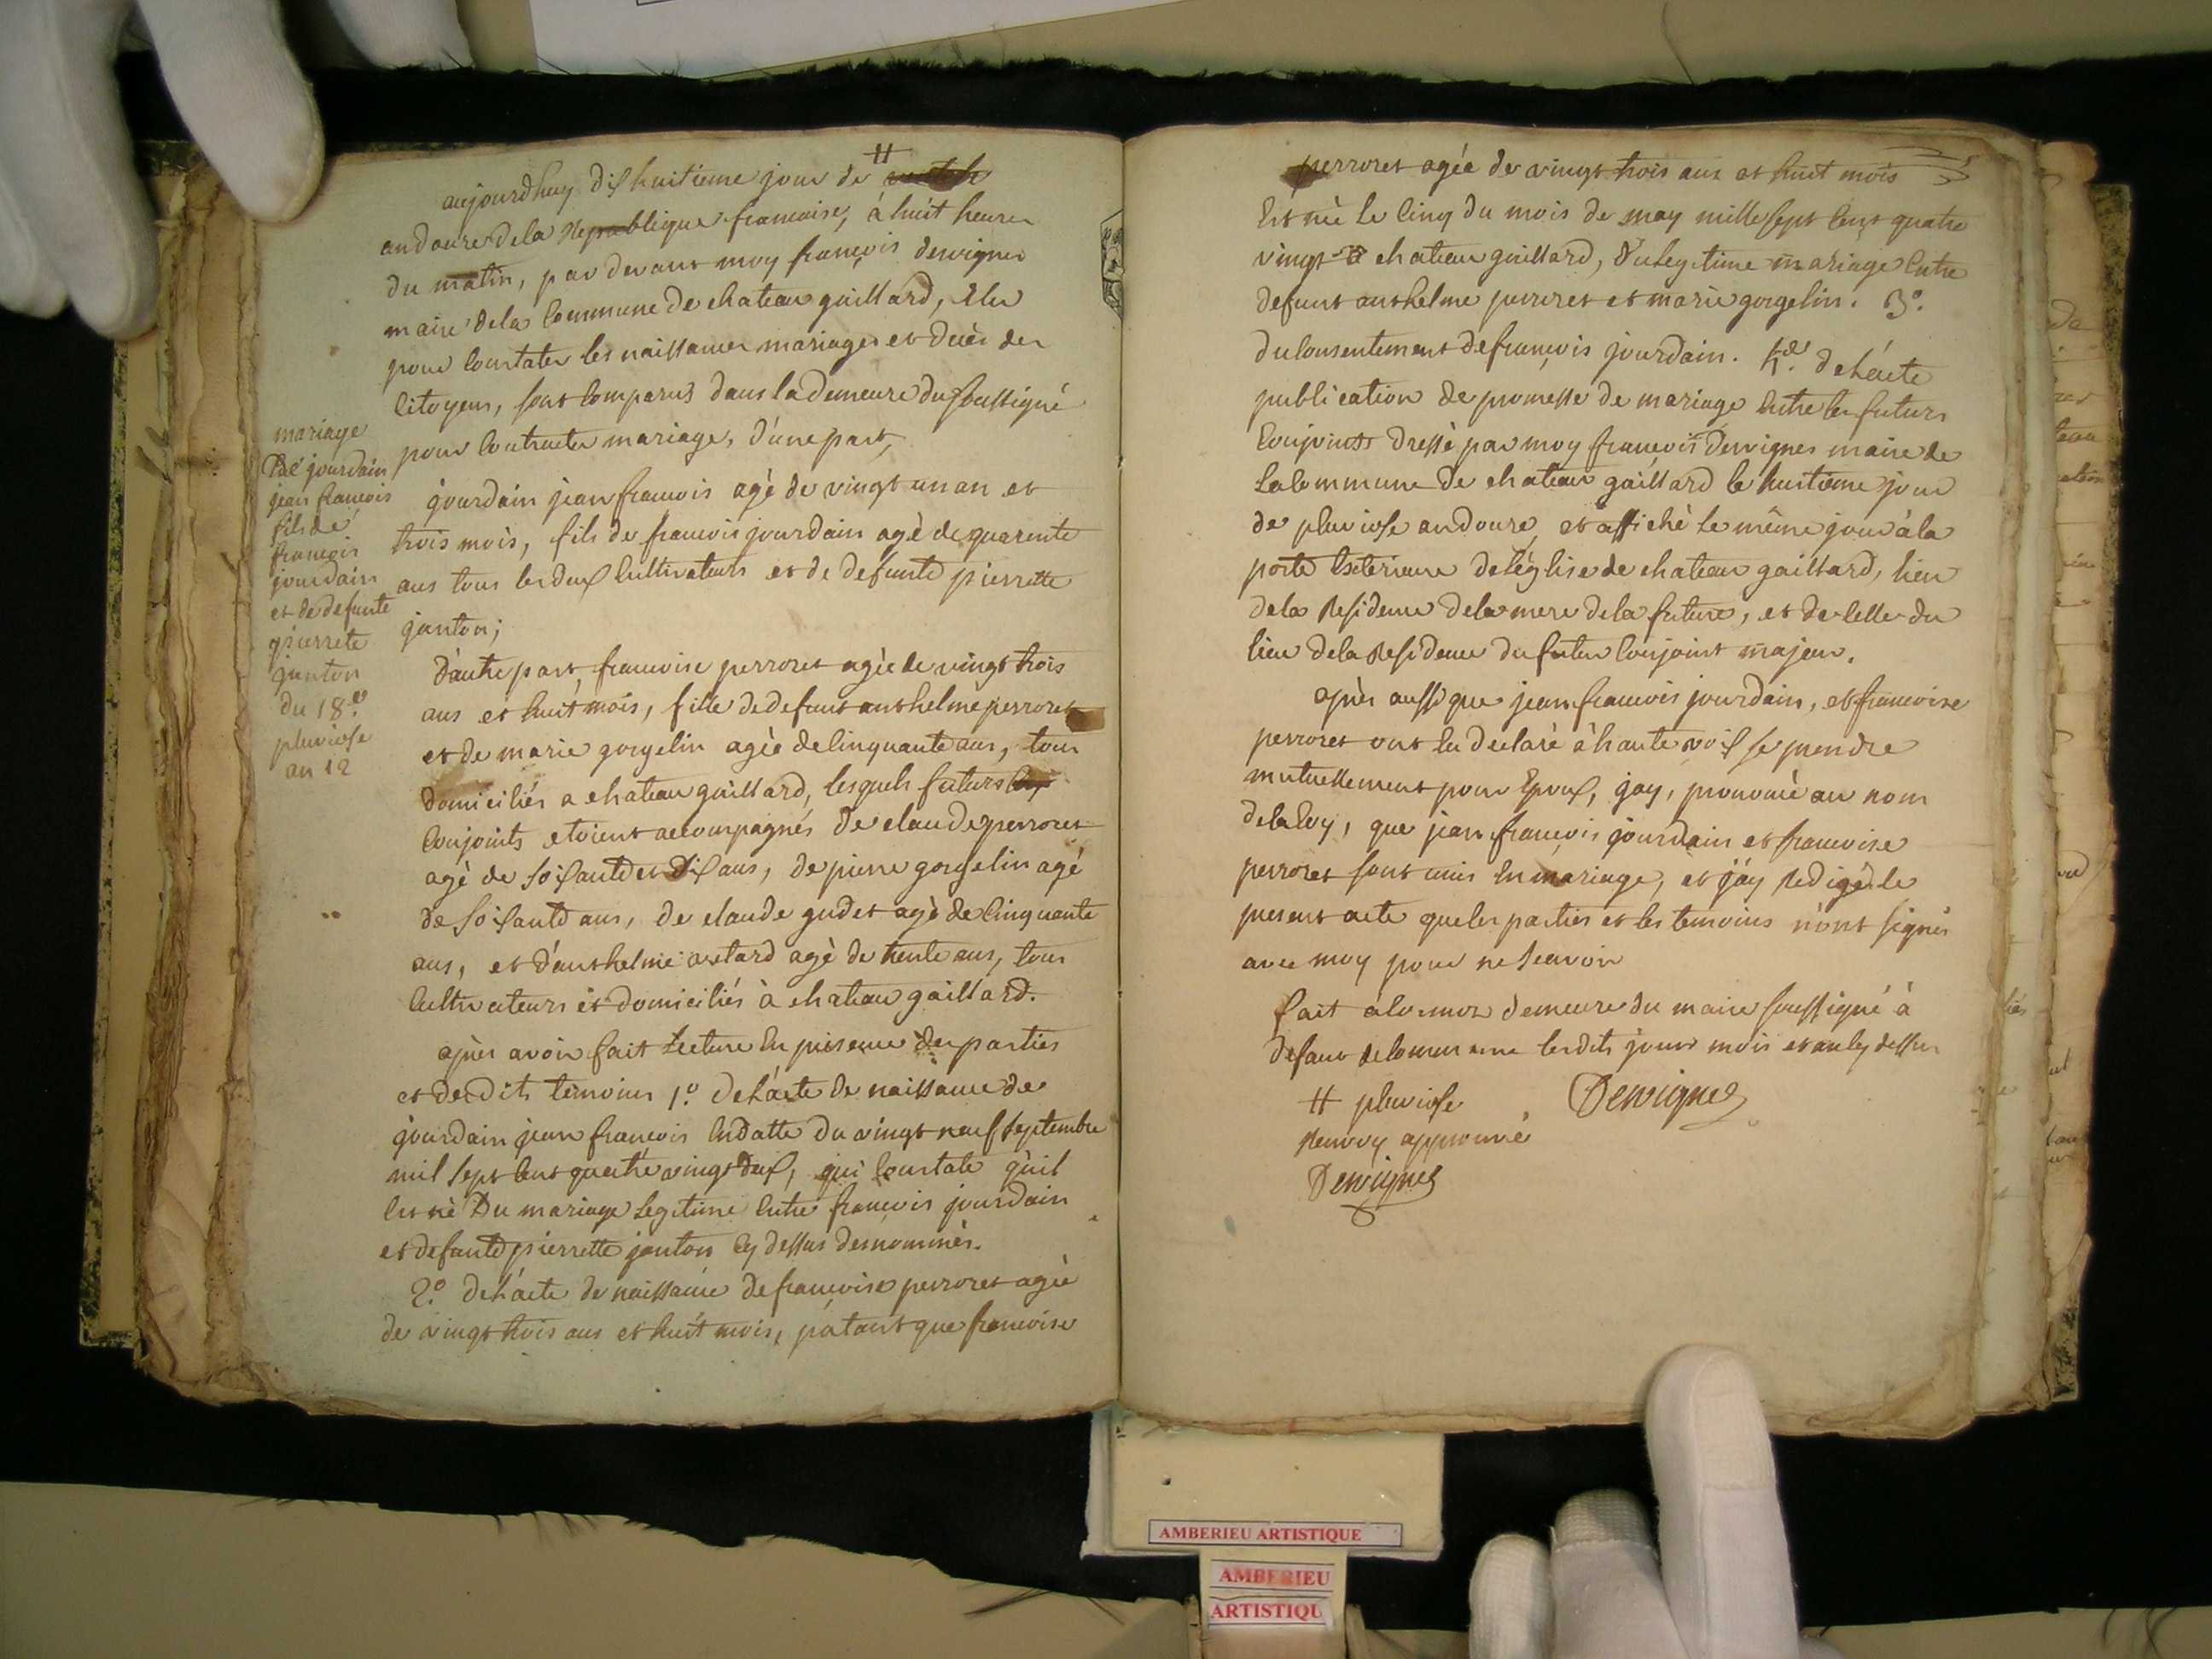 aujourdhuy dix huitieme jour de #
an douze de la Republique francaise, à huit heures
du matin, par devant moy françois dervignes
maire de la Commune de chateau gaillard, Elu
pour Constater les naissances mariages et decès des
Citoyens, sont Comparus dans la demeure du soussigné
pour Contracter mariage, d'une part,
jourdain jean francois agè de vingt un an et
trois mois, fils de francois jourdain agè de quarente
ans tous les deux Cultivateurs et de defunte pierrette
janton;
d'autre part, francoise perroret agèe de vingt trois
ans et huit mois, fille de defunt anthelme perroret
et de marie gorgelin agèe de Cinquante ans, tous
domiciliés a chateau gaillard, lesquels futurs
Conjoints etoient accompagnés de claude perroret
agè de soixante et dix ans, de pierre gorgelin agé
de soixante ans, de claude gudet agè de Cinquante
ans, et d'anthelme astard agè de trente ans, tous
Cultivateurs et domiciliés à chateau gaillard.
après avoir fait Lecture En presence des parties
et desdits temoins 1.º de l'acte de naissance de
jourdain jean francois En datte du vingt neuf septembre
mil sept Cent quatre vingt deux, qui Constate qu'il
Est nè du mariage Legitime Entre francois jourdain
et defunte pierrette janton Cy dessus denommés.
2.º de l'acte de naissance de francoise perroret agèe
de vingt trois ans et huit mois, portant que francoise
mariage
de jourdain
jean francois
fils de
françois
jourdain
et de defunte
pierrete
janton
du 18.e
pluviose
an 12
perroret agée de vingt trois ans et huit mois
Est née le Cinq du mois de may mille sept Cent quatre
vingt à chateau gaillard, du Legitime mariage Entre
defunt anthelme perroret et marie gorgelin. 3.º
du Consentement de francois jourdain. 4.e de l'acte
publication de promesse de mariage Entre les futurs
Conjoints dressé par moy françois Dervignes maire de
La Commune de chateau gaillard le huitieme jour
de pluviose an douze, et affiché le même jour à la
porte Exterieure de l'église de chateau gaillard, lieu
de la Residence de la mere de la future, et de Celle du
lieu de la Residence du futur Conjoint majeur.
après aussi que jean francois jourdain, et francoise
perroret ont Eu declaré à haute voix se prendre
mutuellement pour Epoux, j'ay, prononcé au nom
de la Loy, que jean francois jourdain et francoise
perroret sont unis En mariage, et j'ay Redigé le
present acte que les parties et les temoins n'ont signés
avec moy pour ne scavoir
fait à demeure du maire soussigné à
defaut de lesdits jour mois et an Cy dessus
# pluviose
Renvoy approuvé
Dervignes
Dervignes
AMBERIEU ARTISTIQUE
AMBERIEU
ARTISTIQU